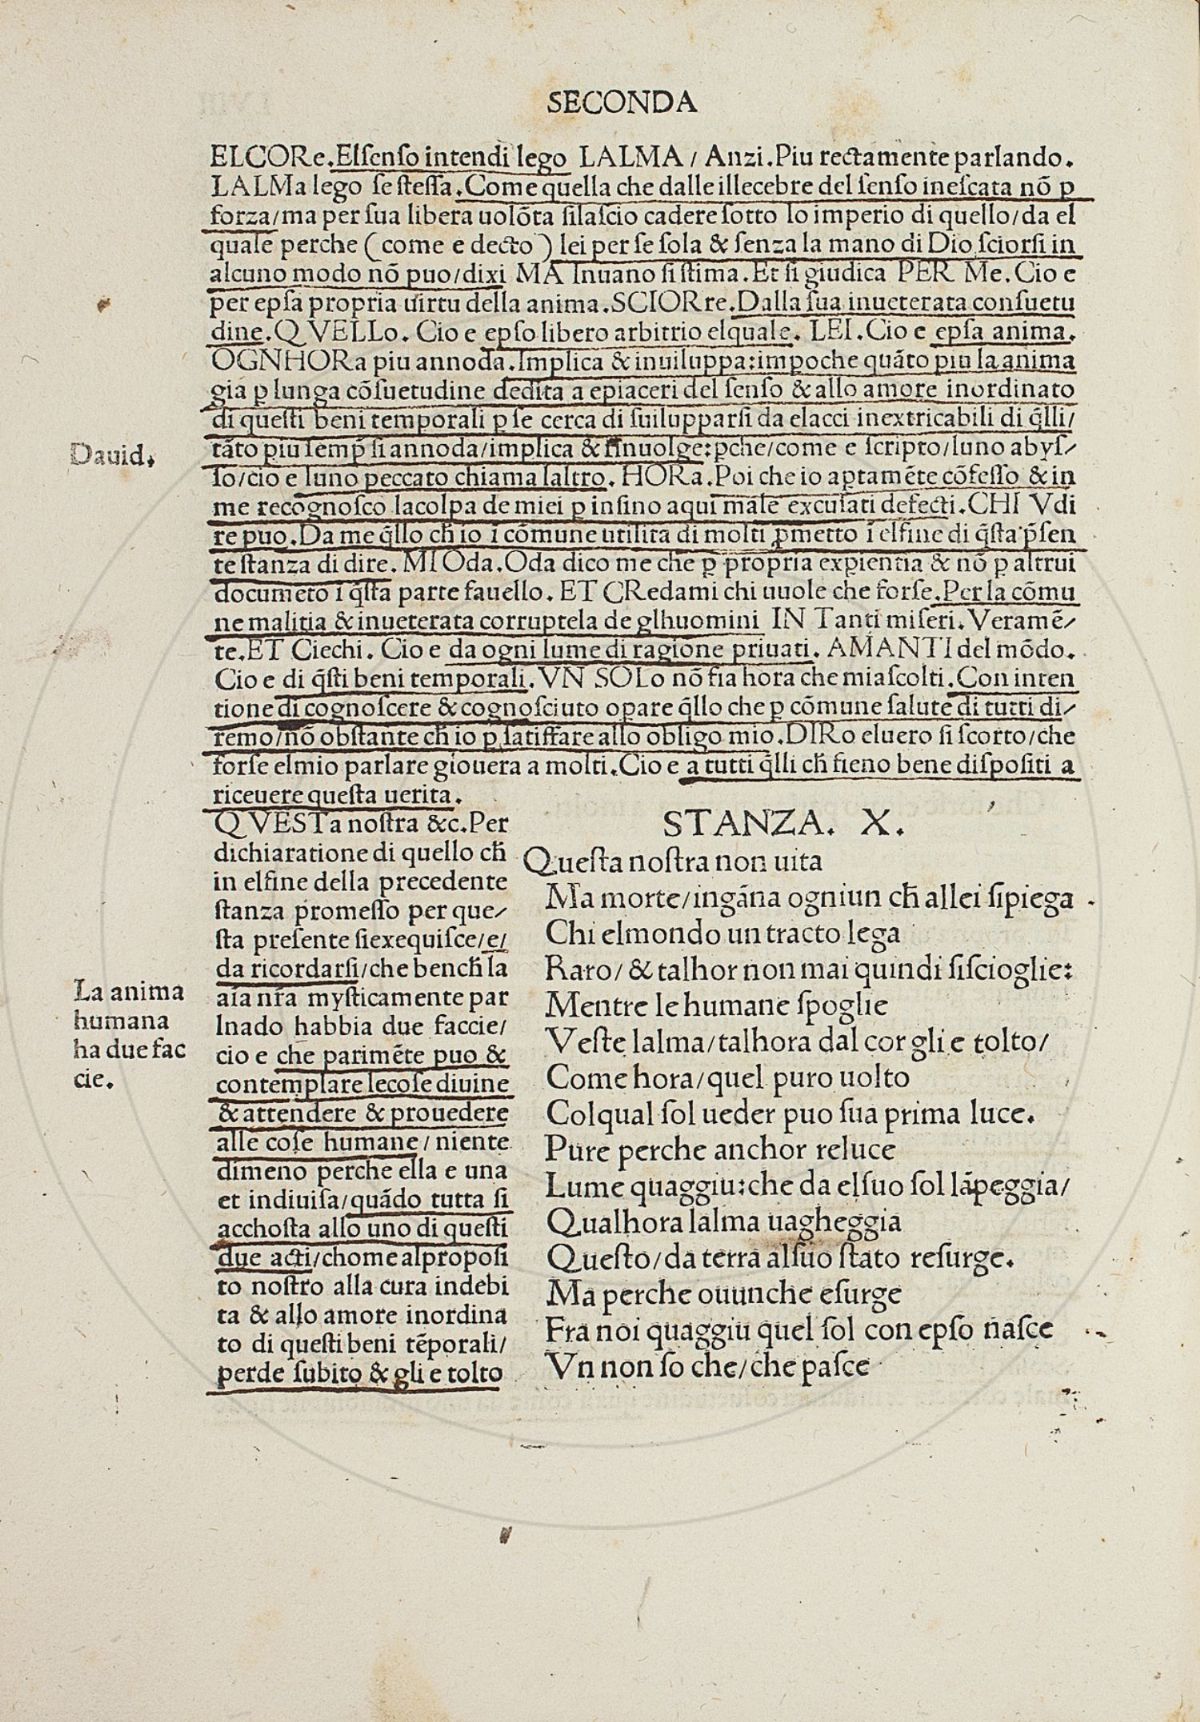 SECONDA
ELCORe.Elſenſo intendi lego LALMA / Anzi.Piu rectamente parlando.
LALMa lego ſe ſteſſa.Come quella che dalle illecebre del ſenſo ineſcata nõ ꝑ
forza/ma per ſua libera uolõta ſilaſcio cadere ſotto lo imperio di quello/da el
quale perche (come e decto) lei per ſe ſola & ſenza la mano di Dio ſciorſi in
alcuno modo nõ puo/dixi MA Inuano ſi ſtima.Et ſi giudica PER Me.Cio e
per epſa propria uirtu della anima.SCIORre.Dalla ſua inueterata conſuetu
dine.QVELLo. Cio e epſo libero arbitrio elquale. LEI.Cio e epſa anima.
OGNHORa piu annoda.Implica & inuiluppa:impoche quãto piu la anima
gia ꝑ lunga cõſuetudine dedita a epiaceri del ſenſo & allo amore inordinato
di queſti beni temporali ꝑ ſe cerca di ſuilupparſi da elacci inextricabili di q̃lli/
Dauid.
tãto piu ſemp̃ ſi annoda/implica & ſinuolge:ꝑche/come e ſcripto/luno abyſ/
ſo/cio e luno peccato chiama laltro. HORa.Poi che io aꝑtamẽte cõfeſſo & in
me recognoſco lacolpa de miei ꝑ inſino aqui male excuſati defecti.CHI Vdi
re puo.Da me q̃llo ch̃ io ĩ cõmune utilita di molti ꝓmetto ĩ elfine di q̃ſta p̃ſen
te ſtanza di dire. MIOda.Oda dico me che ꝑ propria exꝑientia & nõ ꝑ altrui
documẽto ĩ q̃ſta parte fauello. ET CRedami chi uuole che forſe.Per la cõmu
ne malitia & inueterata corruptela de glhuomini IN Tanti miſeri.Veramẽ/
te.ET Ciechi. Cio e da ogni lume di ragione priuati. AMANTI del mõdo.
Cio e di q̃ſti beni temporali.VN SOLo nõ fia hora che miaſcolti.Con inten
tione di cognoſcere & cognoſciuto oꝑare q̃llo che ꝑ cõmune ſalute di tutti di/
remo/nõ obſtante ch̃ io ꝑ ſatiſfare allo obligo mio.DIRo eluero ſi ſcorto/che
forſe elmio parlare giouera a molti.Cio e a tutti q̃lli ch̃ ſieno bene diſpoſiti a
riceuere queſta uerita.
QVESTa noſtra &c.Per
dichiaratione di quello ch̃
in elfine della precedente
ſtanza promeſſo per que/
ſta preſente ſiexequiſce/e/
da ricordarſi/che bench̃ la
aĩa nr̃a myſticamente par
lnado habbia due faccie/
cio e che parimẽte puo &
contemplare lecoſe diuine
& attendere & prouedere
alle coſe humane/ niente
dimeno perche ella e una
et indiuiſa/quãdo tutta ſi
acchoſta allo uno di queſti
due acti/chome alpropoſi
to noſtro alla cura indebi
ta & allo amore inordina
to di queſti beni tẽporali/
perde ſubito & gli e tolto
La anima
humana
ha due fac
cie.
STANZA. X.
Queſta noſtra non uita
Ma morte/ingãna ogniun ch̃ allei ſipiega
Chi elmondo un tracto lega
Raro/ & talhor non mai quindi ſiſcioglie:
Mentre le humane ſpoglie
Veſte lalma/talhora dal cor gli e tolto/
Come hora/quel puro uolto
Colqual ſol ueder puo ſua prima luce.
Pure perche anchor reluce
Lume quaggiu:che da elſuo ſol lãpeggia/
Qualhora lalma uagheggia
Queſto/da terra alſuo ſtato reſurge.
Ma perche ouunche eſurge
Fra noi quaggiu quel ſol con epſo naſce
Vn non ſo che/che paſce